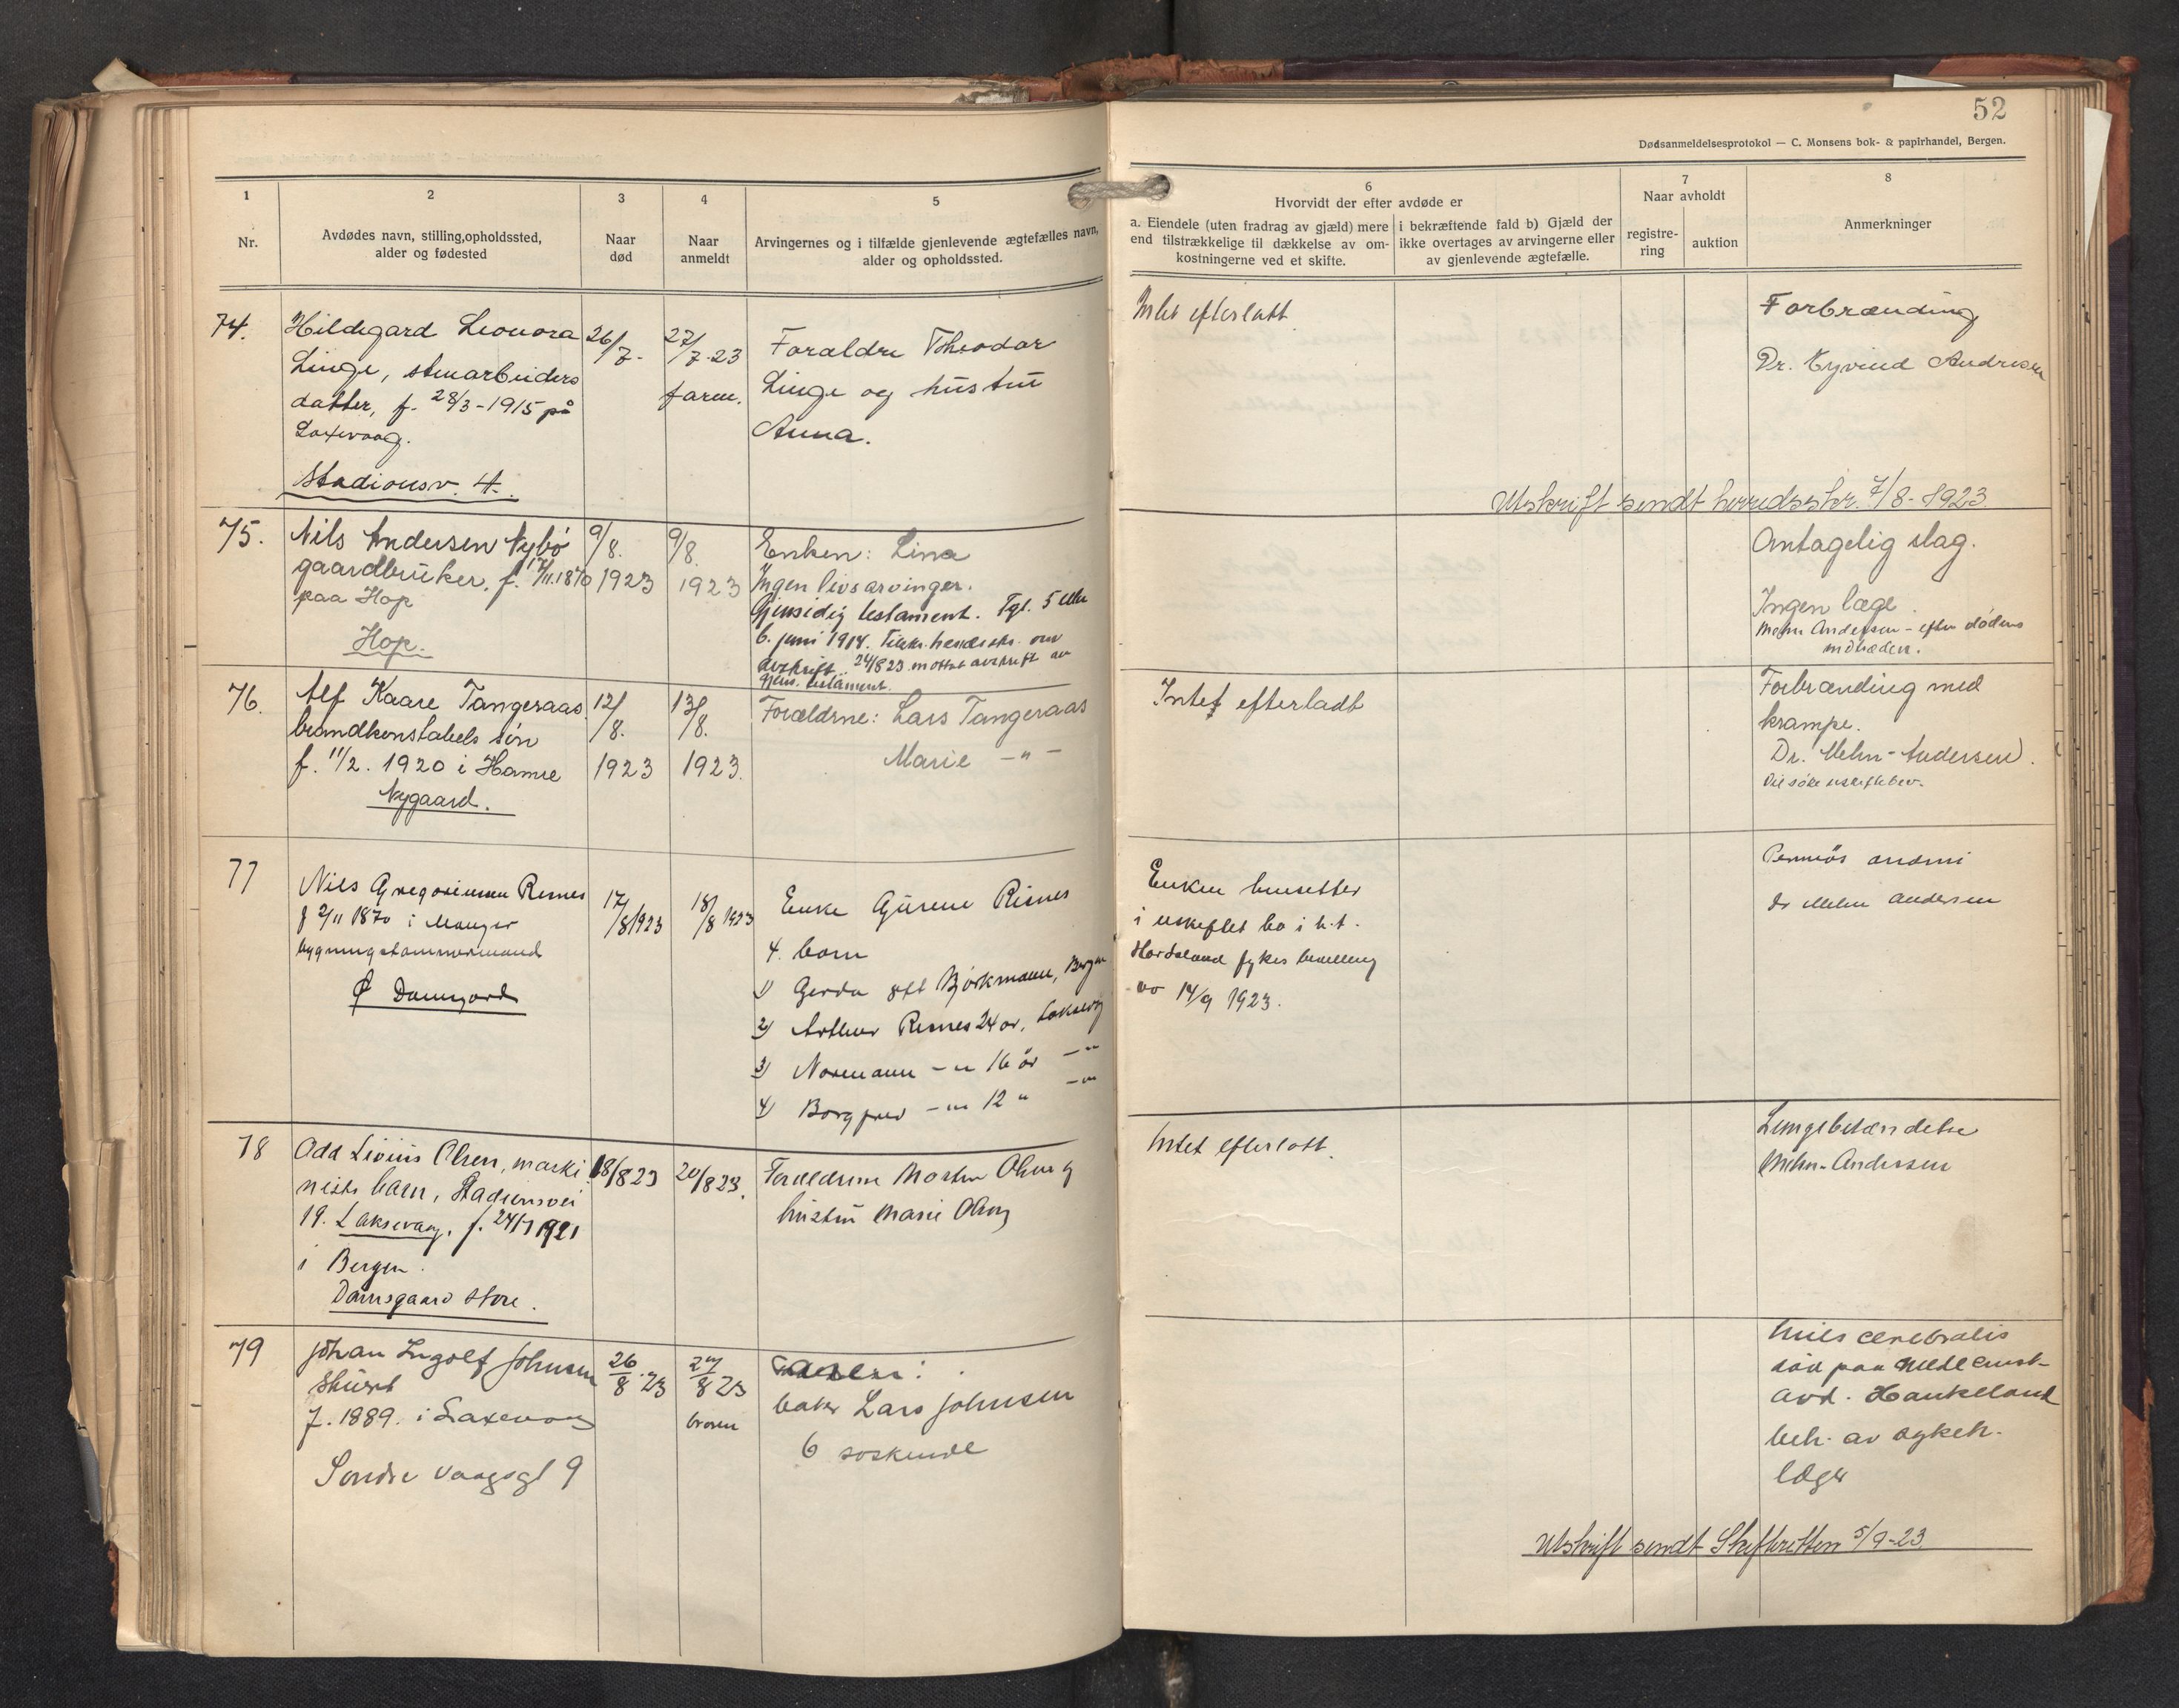 52
Dødsanmeldelsesprotokol — C. Monsens bok- & papirhandel, Bergen.
1
Nr.
2
Avdødes navn, stilling,opholdssted,
alder og fødested
3
Naar
død
4
Naar
anmeldt
5
Arvingernes og i tilfælde gjenlevende ægtefælles navn,
alder og opholdssted.
6
Hvorvidt der efter avdøde er
a. Eiendele (uten fradrag av gjæld) mere
end tilstrækkelige til dækkelse av om-
kostningerne ved et skifte.
i bekræftende fald b) Gjæld der
ikke overtages av arvingerne eller
av gjenlevende ægtefælle.
7
Naar avholdt
registre-
ring
auktion
8
Anmerkninger
74.
Hildegard Leonora
Linge, stenarbeiders
datter, f. 28/3-1915 på
Laxevaag.
Stadionsv. 4.
26/7-
27/7-23
faren.
Foraldre Theodor
Linge og hustru
Anna.
Intet efterlatt
Forbrænding
Dr. Eyvind Andresen
Utskrift sendt herredsskr. 7/8-1923
75.
Nils Andersen Nybø
gaardbruker, f. 17/11.1870
paa Hop
Hop.
9/8.
1923
9/8.
1923
Enken: Lina
Ingen livsarvinger.
Gjensidig testament. Tgl. 5
6. juni 1914. om
avskrift. 24/8 23 mottat avskrift av
gjens. testament.
Antagelig slag.
Ingen læge.
Mehn Andersen - efter dødens
indtræden.
76.
Alf Kaare Tangeraas
brandkonstabels søn
f. 11/2. 1920 i Hamre
Nygaard.
12/8.
1923
13/8.
1923.
Forældrne: Lars Tangeraas
Marie —"—
Intet efterladt
Forbrænding med
krampe.
Dr. Mehn-Andersen.
Vil søke uskiftebev.
77
Nils Gregoriussen Risnes
f 2/11 1870 i Manger
bygningstømmermand
Ø Damsgard
17/8 1923
18/8 1923
Enke Gurine Risnes
4. born
1) Gerda gft Bjørkmann, Bergen
2) Arthur Risnes 24 år, Laksevåg
3) Normann —"— 16 år —"
4) Borgfred —"— 12 " —"
Enken hensetter
i uskiftet bo i h.t.
Hordaland fylkes bevilling
av 14/9 1923.
Perniciøs anæmi
Dr Mehn Andersen
78
Odd Livius Olsen, maski
nists barn, Stadionsvei
19. Laksevaag, f. 24/7 1921
i Bergen.
Damsgaard store.
18/8 23
20/8 23.
Foreldrene Morten Olsen og
hustru Marie Olsen
Intet efterlatt.
Lungebetændelse
Mehn-Andersen
79
Johan Ingolf Johnsen
f. 1889. i Laxevaag
Søndre Vaagsgt 9
26/8 23
27/8 23
broren
Lars Johnsen
6 søskende
cerebralis
død paa medicinsk
avd. Haukeland
beh. av sykeh.
læger
Utskrift sendt Skifteretten 5/9-23